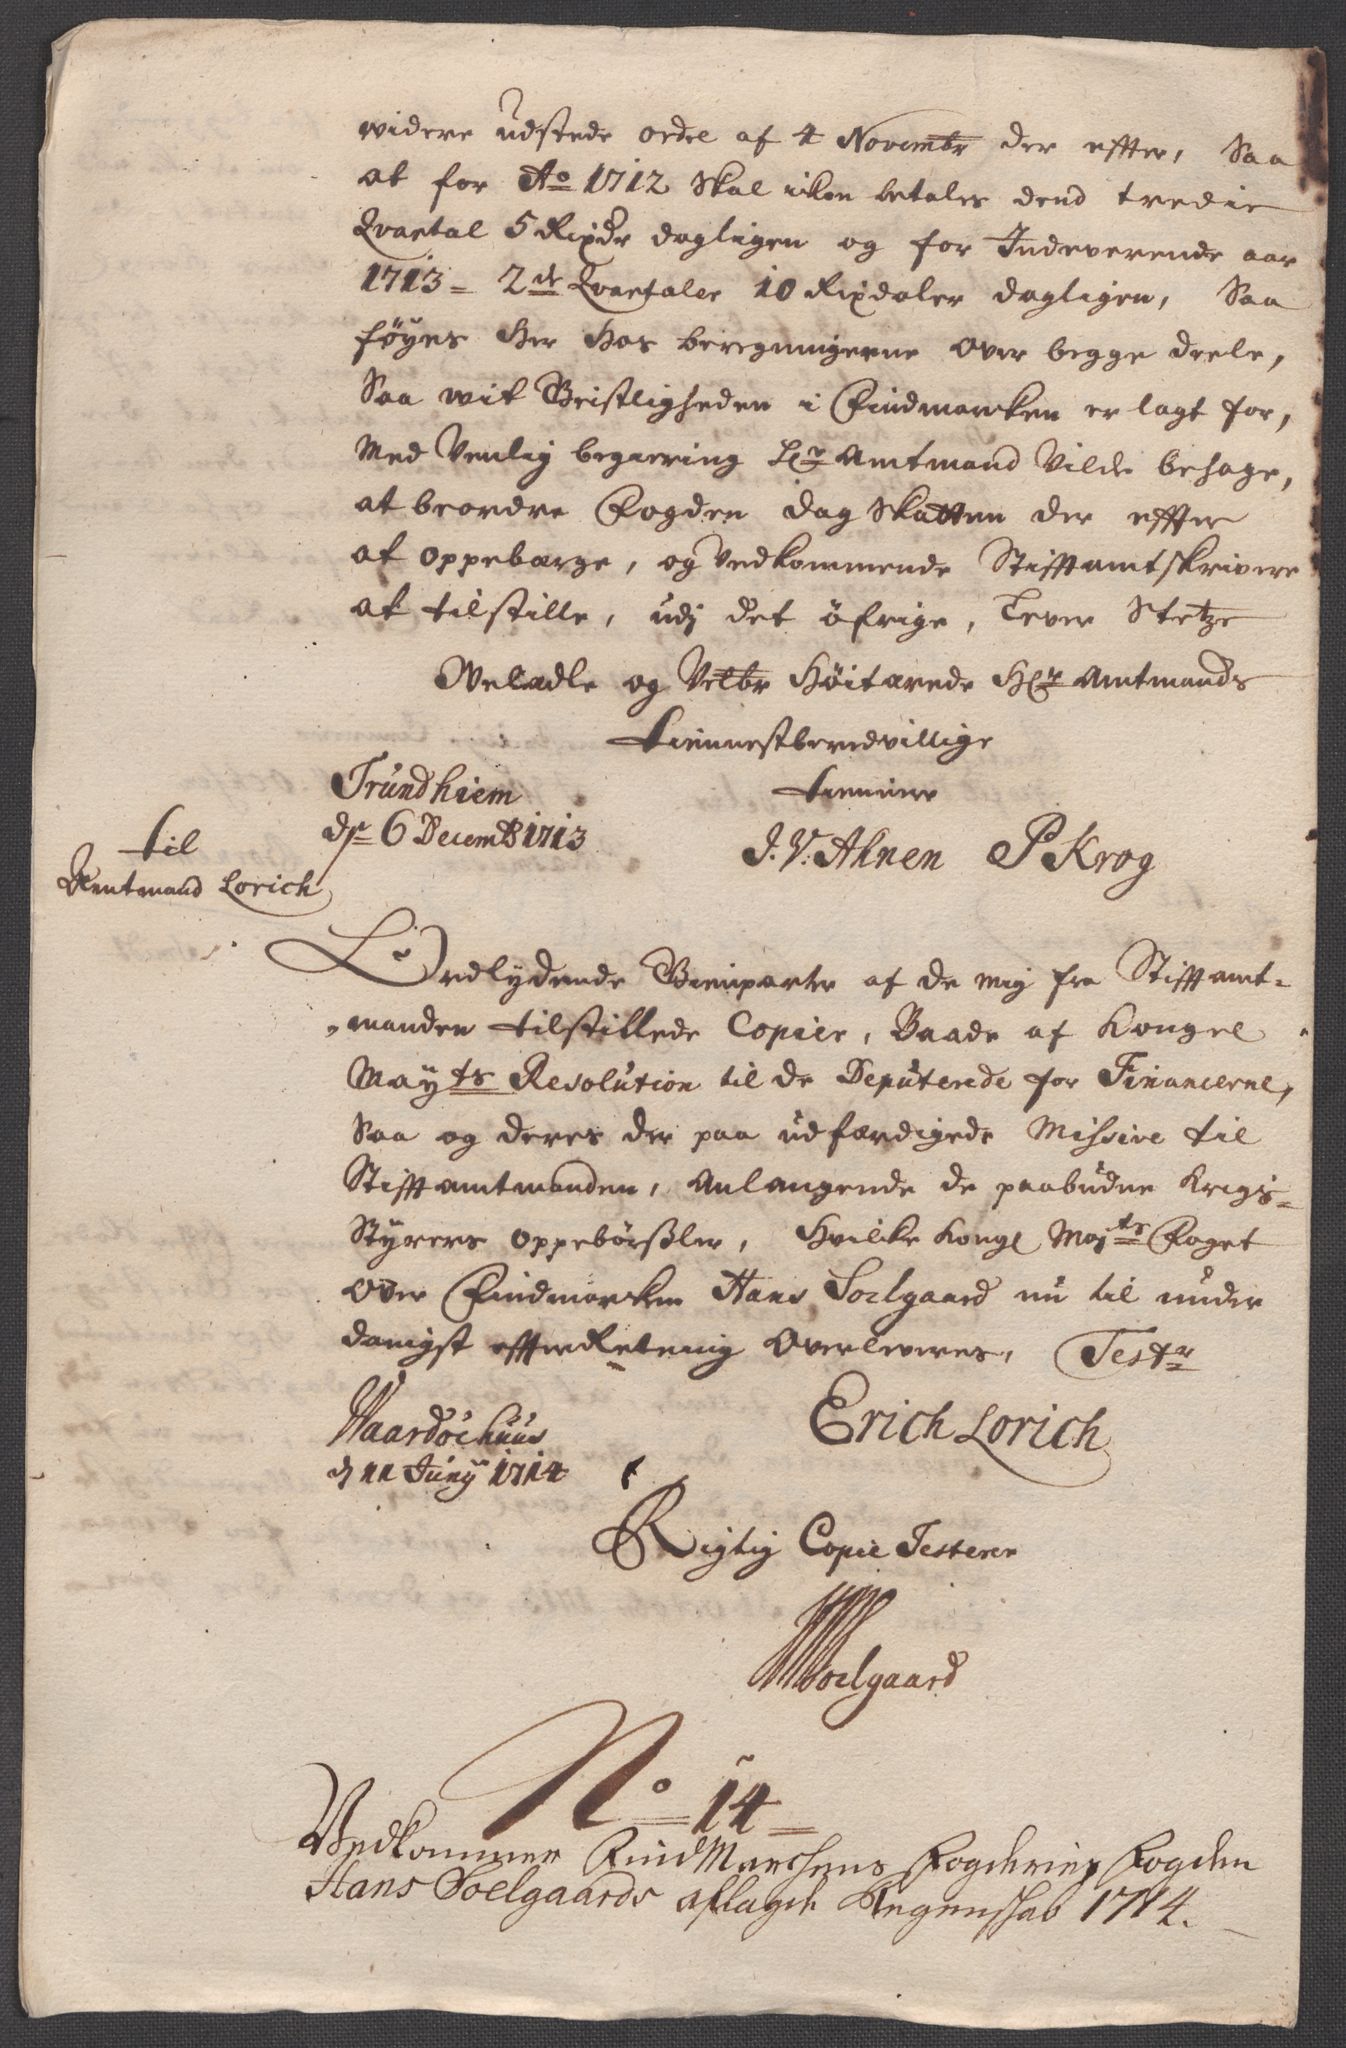 widere udstede ordre af 4 Novembr der effter, Saa
at for Ao 1712 Skal ickon betales dend tredie
Qvartal 5 Rixdr dagligen og for Indeverende aar
1713 = 2de Qvartaler 10 Rixdaler dagligen, Saa
föyes Her Hos beregningerne over begge deele,
Saa wit Geistligheden i Findmarcken er lagt for,
Med Venlig begiering Hr Amtmand Vilde behage,
at beordre Fogden Dag Skatten der effter
at oppebærge, og Vedkommende Stifftamtskrivere
at tilstille, udj det öfrige, lever Stetze
Weladle og Velbr Höitærede Hr Amtmands
tiennestberedvillige
Trundhiem
tiennere
dr 6 Decemb 1713
J. V. Ahnen P Krog
til
Amtmand Lorich
Ordlydende Gienparter af de mig fra Stifftamt-
manden tilstillede Copier, Baade af Kongel
Mayts Resolution til de Deputerede for Financerne,
Saa og deres der paa udfærdigede Missive til
Stifftamtmanden, Anlangende de paabudne Krigs-
Styrers oppebörsler, Hvilke Kongl Mayts Foget
over Findmarken Hans Soelgaard nu til under
danigst effterRetning Overleveres, Testr
Waardöehuus
Erich Lorich
d 11 Junÿ 1714
Rigtig Copie Testerer
HSoelgaard
No 14
Vedkommer FindMarchens Fogderies Fogden
Hans Soelgaards aflagde Regenschab 1714.